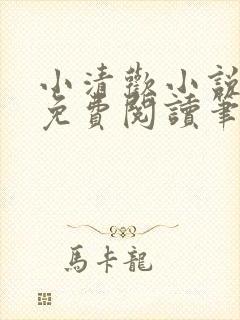 小清歡小說
免費閱讀筆
馬卡龍